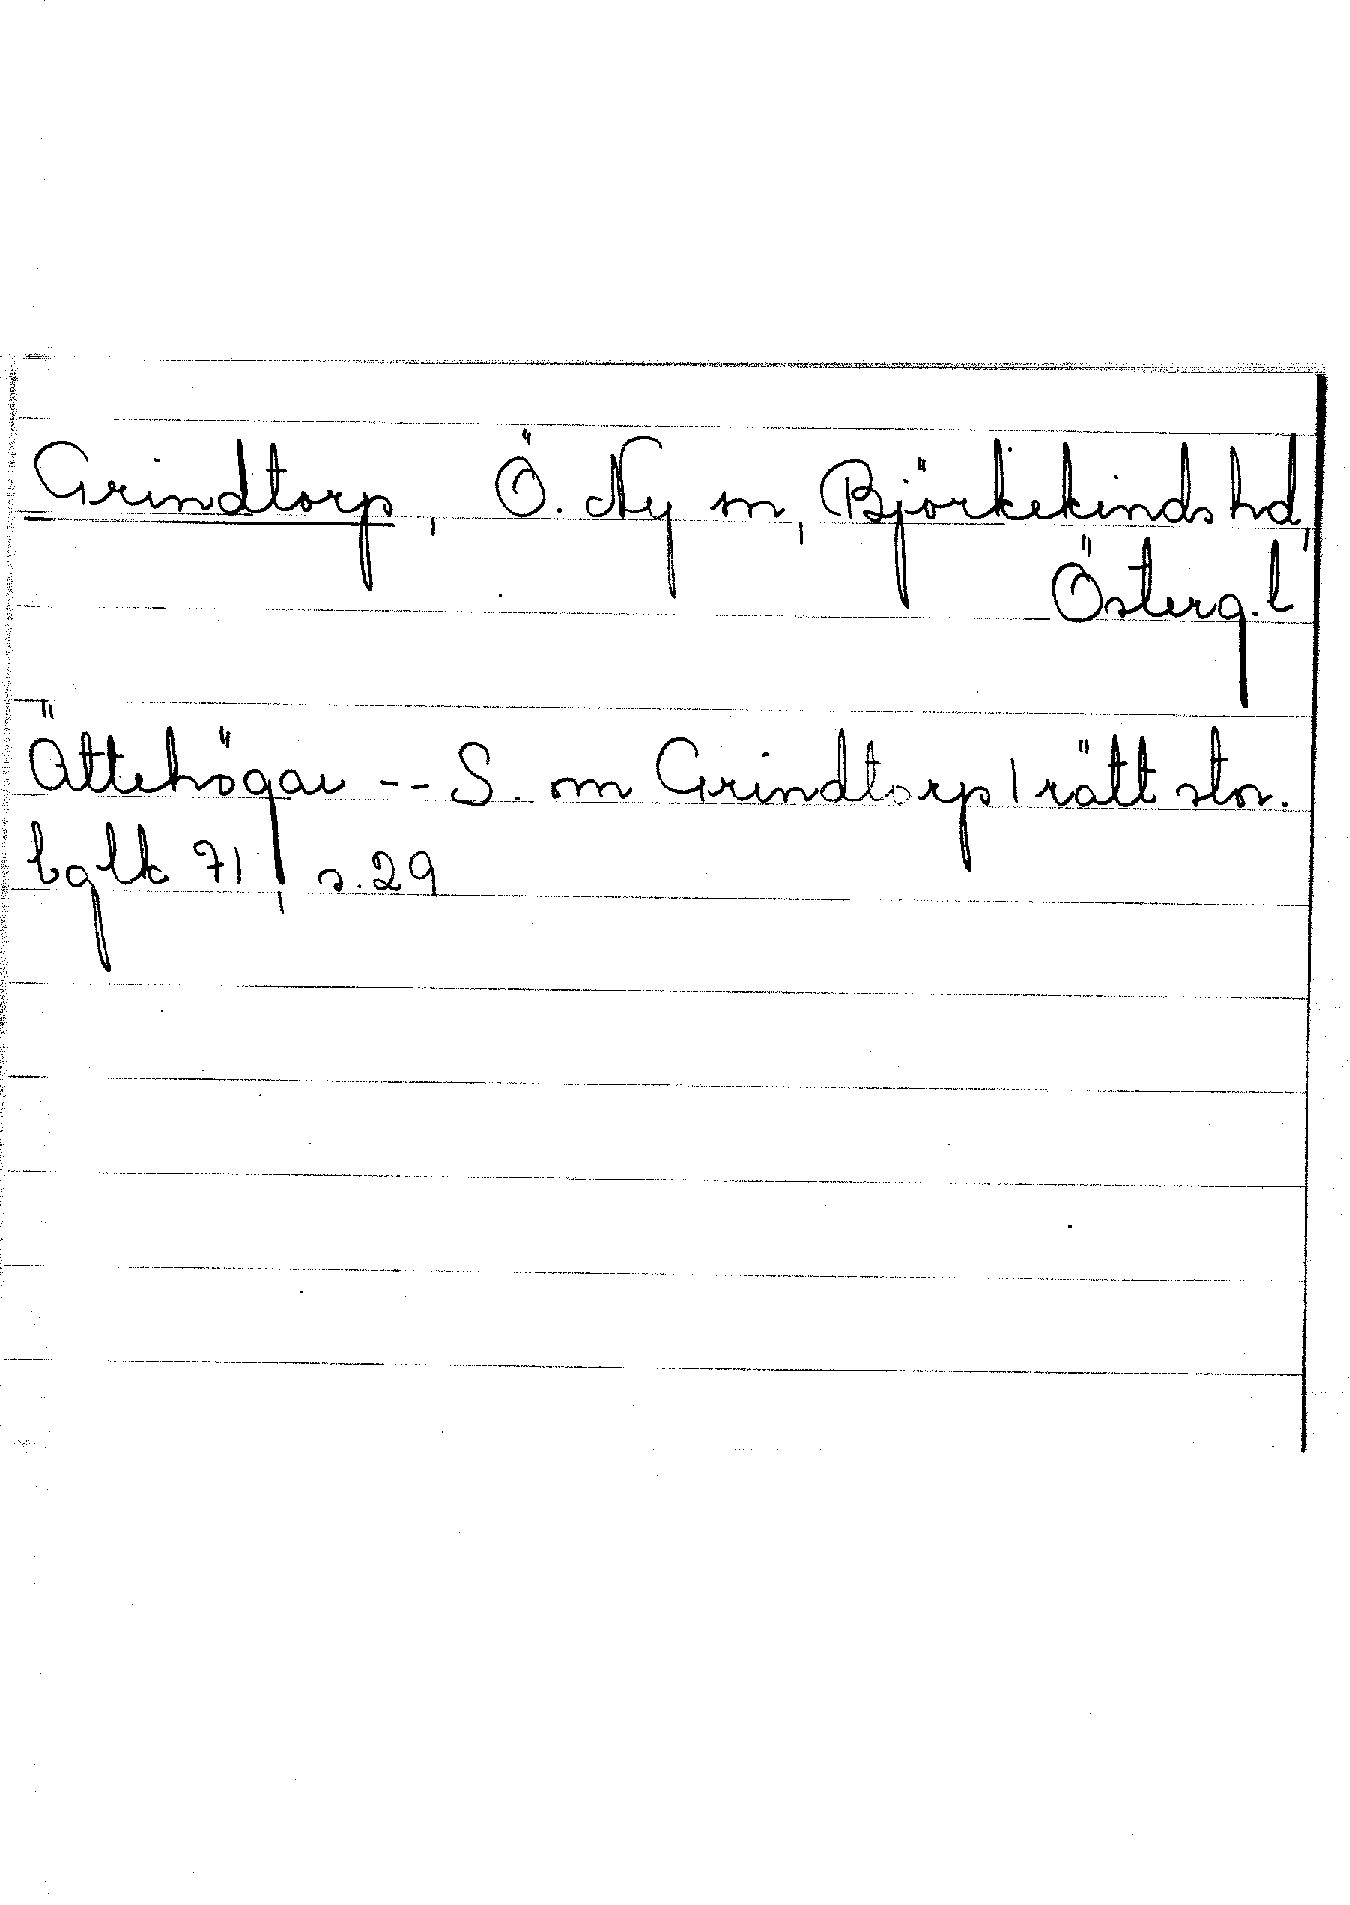 Grindtorp, Ö. Ny sn, Björkekinds hd,
Österg. l
Ättehögar -- S. om Grindtorp / rätt stor.
bglk 71, s. 29